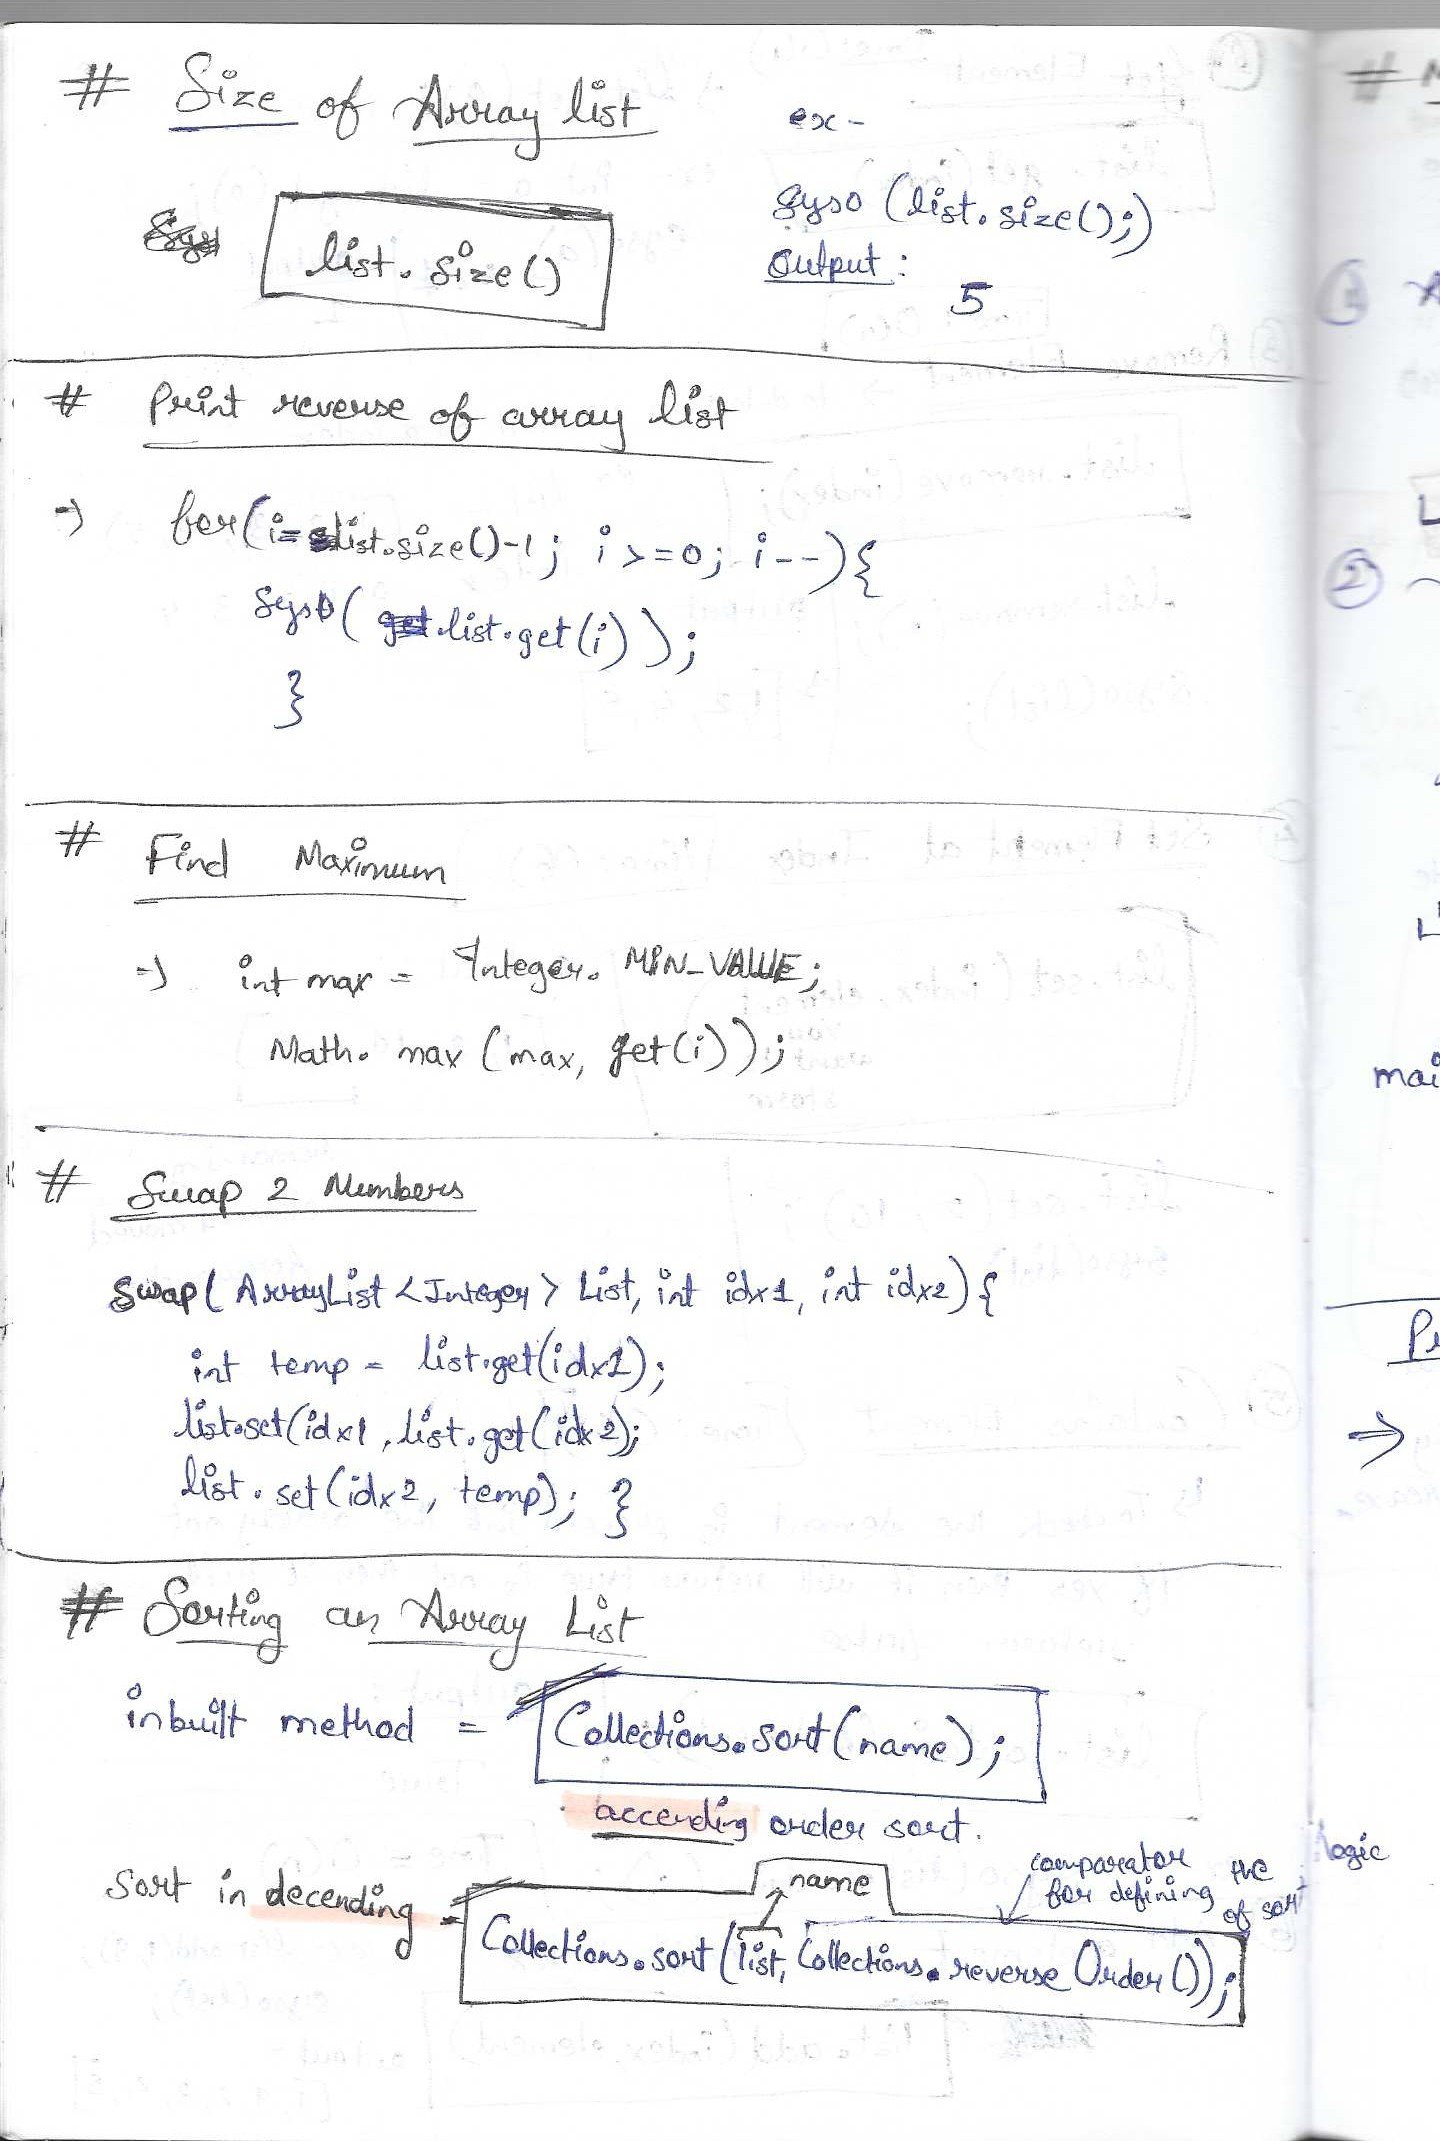 # Size of Array list
ex -
list.size()
Syso (list.size();)
Output :
5
# Print reverse of array list
⇒ for(i=list.size()-1; i>=0; i--){
Syso( list.get(i));
}
# Find Maximum
⇒ int max = Integer.MIN_VALUE;
Math.max (max, get(i));
# Swap 2 Numbers
Swap( ArrayList <Integer> List, int idx1, int idx2){
int temp = list.get(idx1);
list.set(idx1, list.get(idx2);
list.set(idx2, temp); }
# Sorting an Array List
inbuilt method = Collections.sort(name);
accending order sort.
name
comparator
for defining the logic
of sort
Sort in decending = Collections.sort(list, Collections.reverse Order());
# M
1
2
mai
Pr
⇒